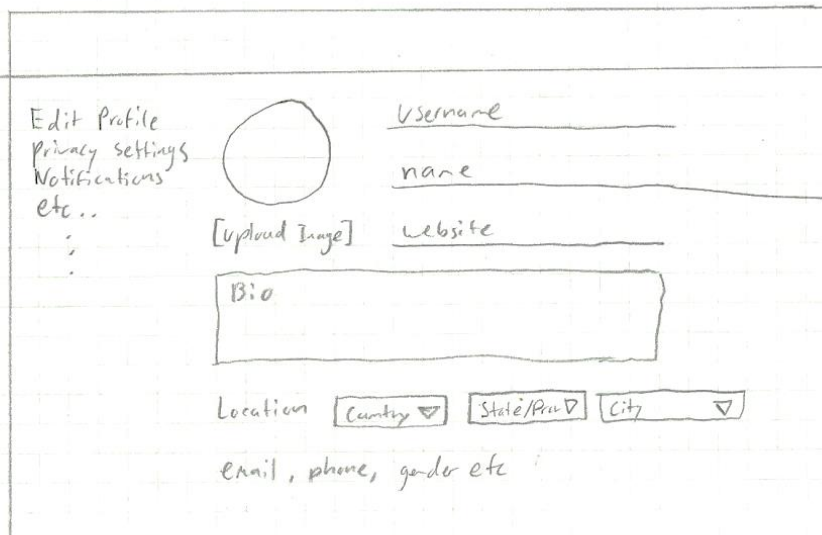 Edit Profile
Privacy settings
Notifications
etc..
.
.
.
username
name
[upload Image]
website
Bio
Location
Country
State/Prov
City
email, phone, gender etc